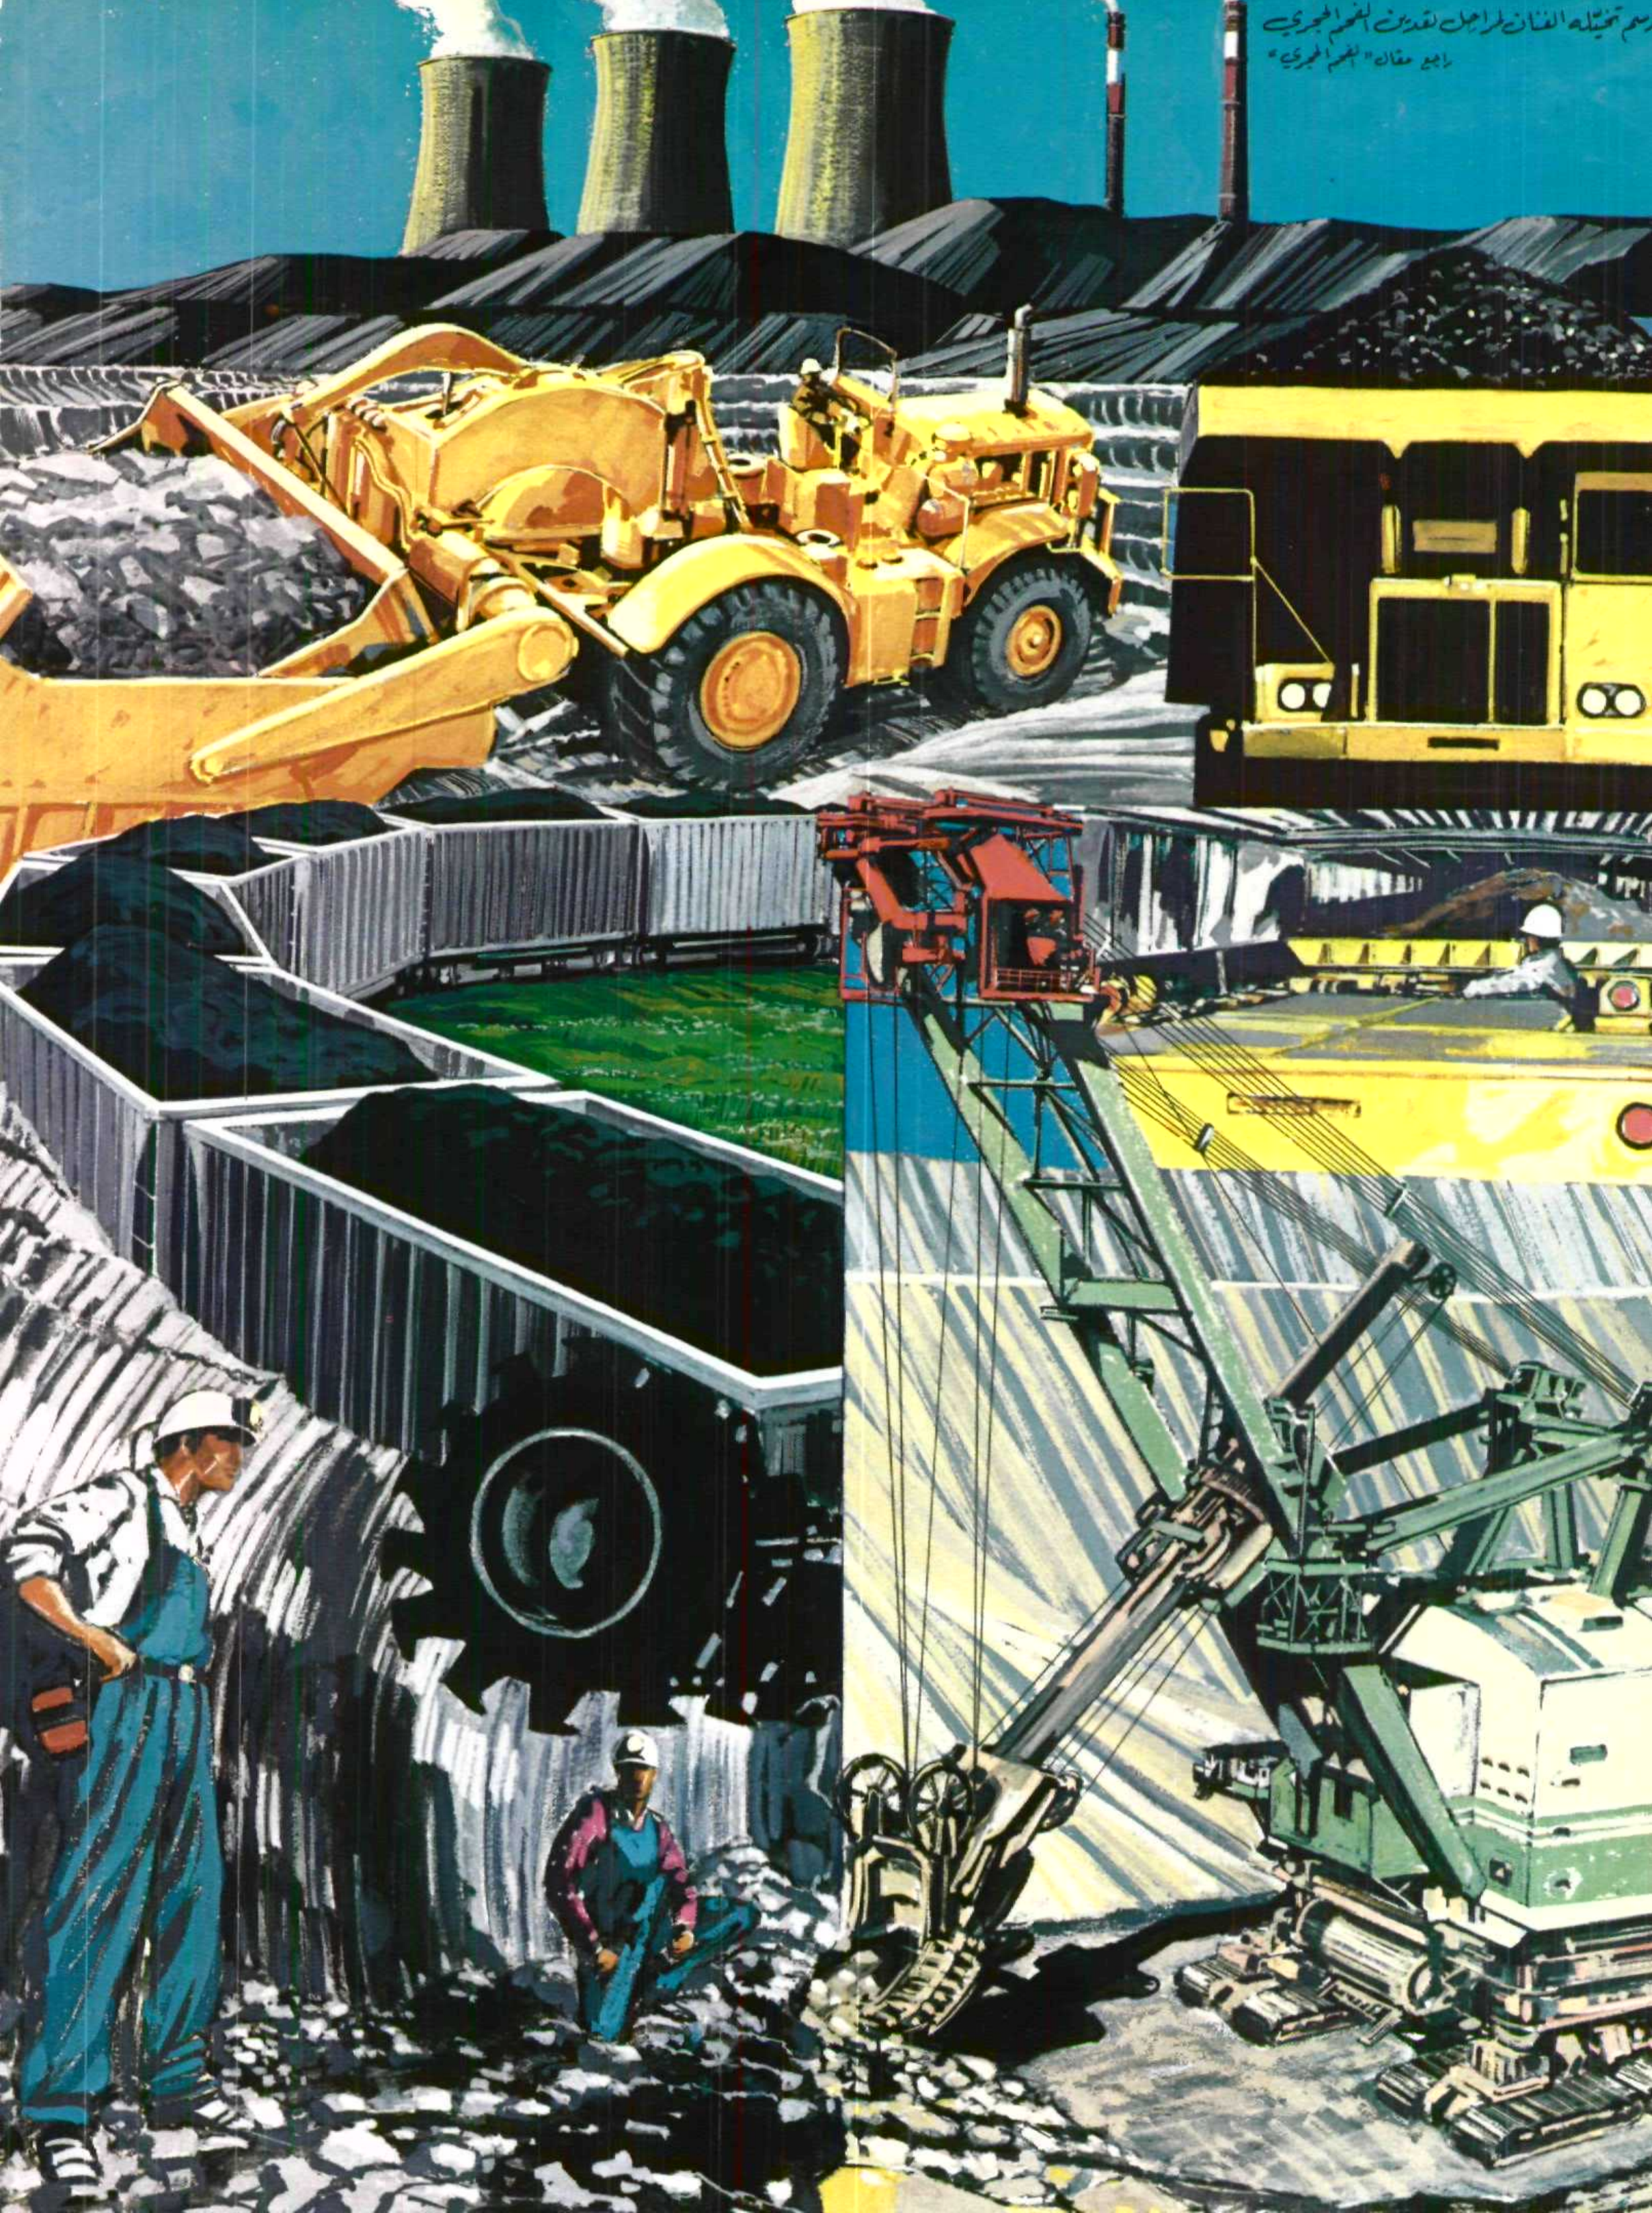 رسم تخيّله الفنان لمراحل تعدين الفحم الحجري
راجع مقال "الفحم الحجري"